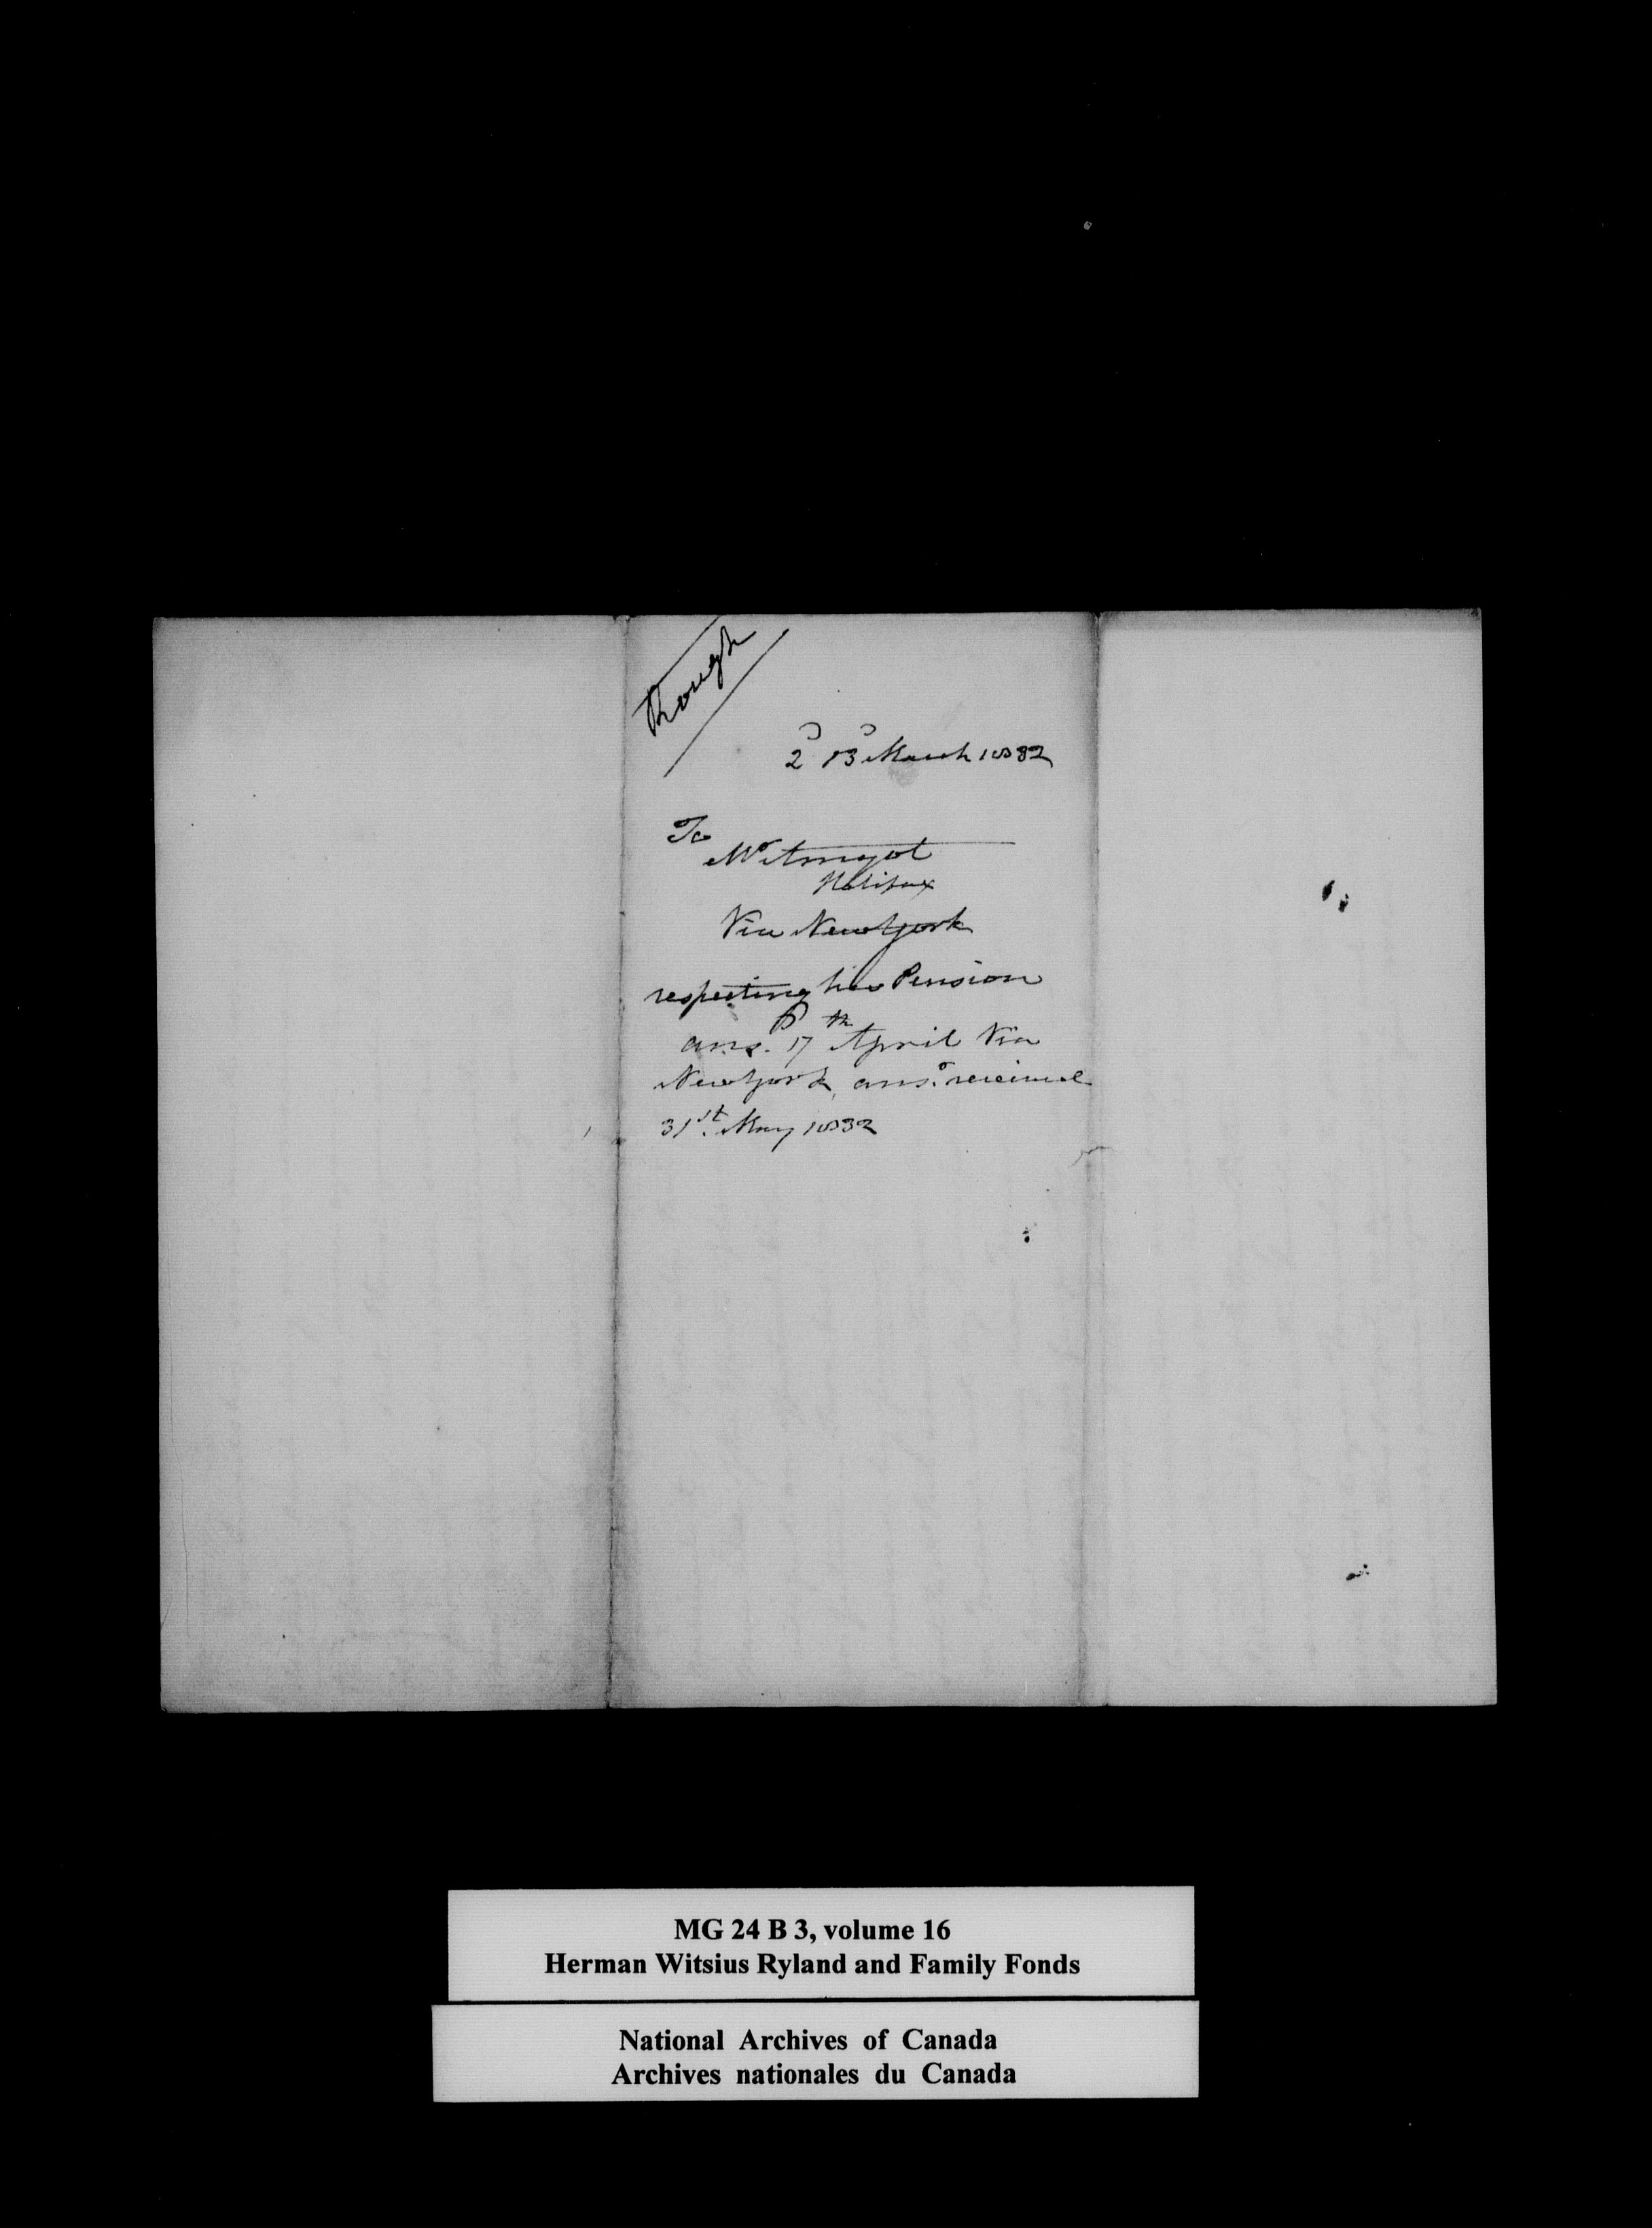 Rough
2 13 March 1832
To
Mr Amyot
Halifax
Via New York
respecting his Pension
ans. 17th April Via
New York, ansr. received
31st. May 1832
MG 24 B 3, volume 16
Herman Witsius Ryland and Family Fonds
National Archives of Canada
Archives nationales du Canada